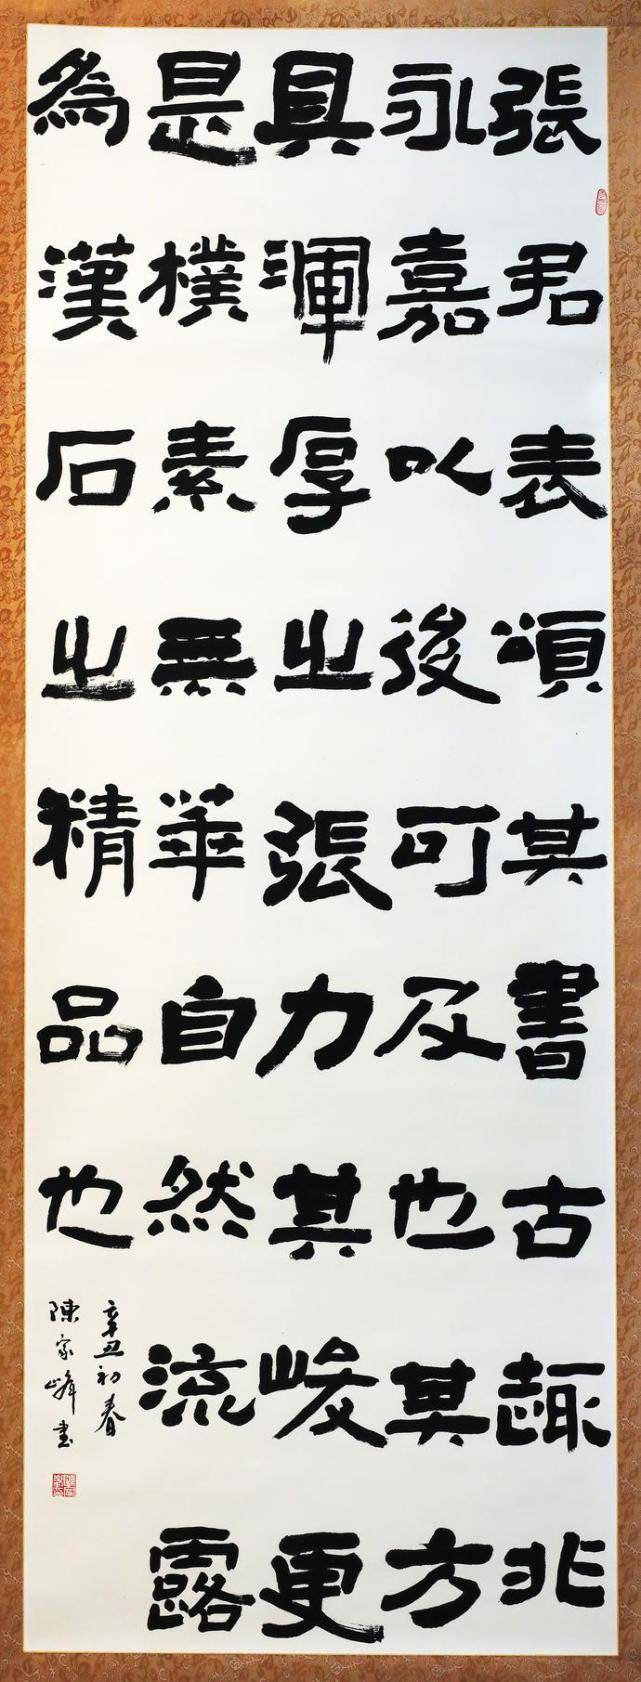 張君表頌其書古趣非
永嘉以後可及也其方
具渾厚之張力其峻更
是樸素無華自然流露
為漢石之精品也
辛丑初春
陳家峰書